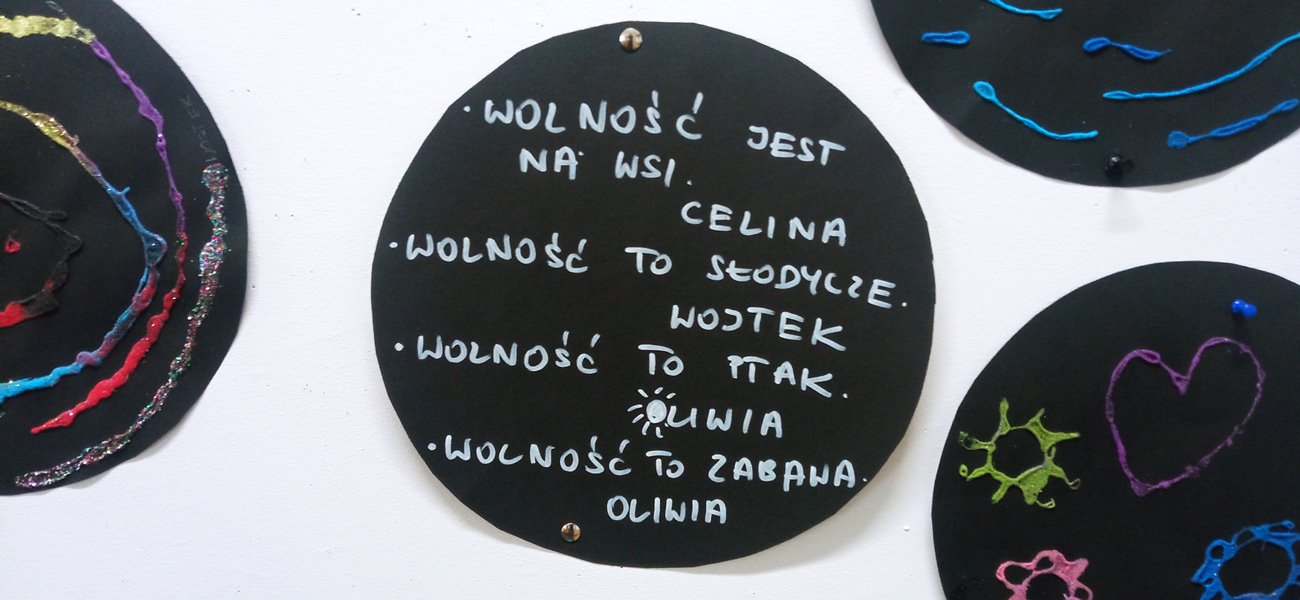 · WOLNOŚĆ JEST
NA WSI.
CELINA
· WOLNOŚĆ TO SŁODYCZE.
WOJTEK
· WOLNOŚĆ TO PTAK.
OLIWIA
· WOLNOŚĆ TO ZABAWA.
OLIWIA